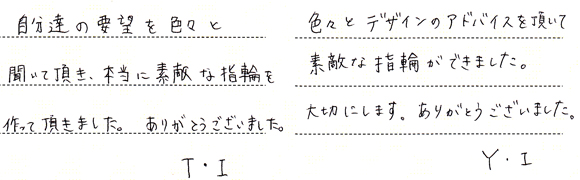 自分達の要望を色々と
聞いて頂き、本当に素敵な指輪を
作って頂きました。 ありがとうございました。
T・I
色々とデザインのアドバイスを頂いて
素敵な指輪ができました。
大切にします。ありがとうございました。
Y・I